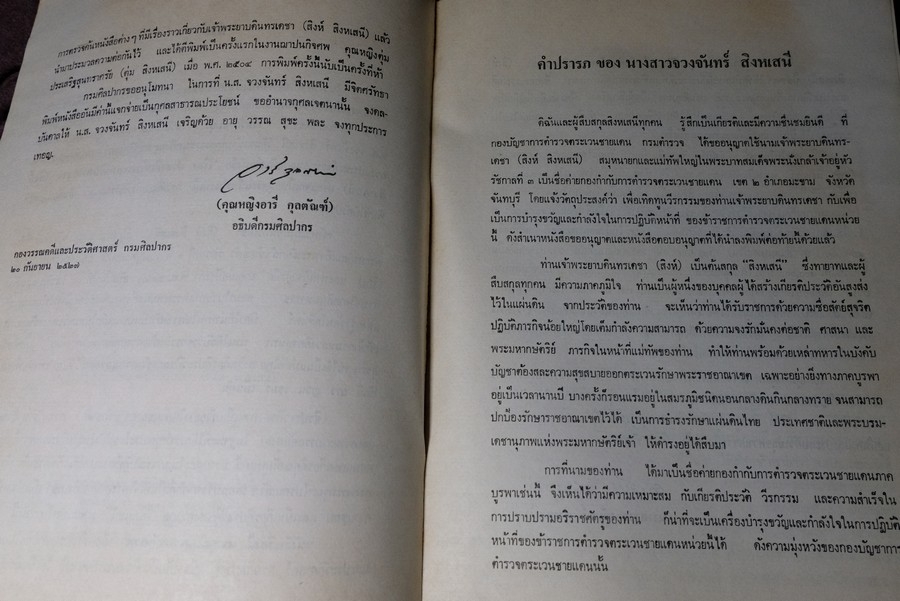 การตรวจค้นหนังสือต่าง ๆ ที่มีเรื่องราวเกี่ยวกับเจ้าพระยาบดินทรเดชา (สิงห์ สิงหเสนี) แล้ว
นำมาประมวลความต่อกันไว้ และได้ตีพิมพ์เป็นครั้งแรกในงานฌาปนกิจศพ คุณหญิงตุ่ม
ประเสริฐสุนทราศรัย (ตุ่ม สิงหเสนี) เมื่อ พ.ศ. ๒๕๐๔ การพิมพ์ครั้งนี้นับเป็นครั้งที่ห้า
กรมศิลปากรขออนุโมทนา ในการที่ น.ส. จวงจันทร์ สิงหเสนี มีจิตศรัทธา
พิมพ์หนังสืออันมีค่านี้แจกจ่ายเป็นกุศลสาธารณประโยชน์ ขออำนาจกุศลเจตนานั้น จงดล-
บันดาลให้ น.ส. จวงจันทร์ สิงหเสนี เจริญด้วย อายุ วรรณ สุขะ พละ จงทุกประการ
เทอญ.
(คุณหญิงอารี กุลตัณฑ์)
อธิบดีกรมศิลปากร
กองวรรณคดีและประวัติศาสตร์ กรมศิลปากร
๒๐ กันยายน ๒๕๒๗
คำปรารภ ของ นางสาวจวงจันทร์ สิงหเสนี
ดิฉันและผู้สืบสกุลสิงหเสนีทุกคน รู้สึกเป็นเกียรติและมีความชื่นชมยินดี ที่
กองบัญชาการตำรวจตระเวนชายแดน กรมตำรวจ ได้ขออนุญาตใช้นามเจ้าพระยาบดินทร-
เดชา (สิงห์ สิงหเสนี) สมุหนายกและแม่ทัพใหญ่ในพระบาทสมเด็จพระนั่งเกล้าเจ้าอยู่หัว
รัชกาลที่ ๓ เป็นชื่อค่ายกองกำกับการตำรวจตระเวนชายแดน เขต ๒ อำเภอมะขาม จังหวัด
จันทบุรี โดยแจ้งวัตถุประสงค์ว่า เพื่อเทิดทูนวีรกรรมของท่านเจ้าพระยาบดินทรเดชา กับเพื่อ
เป็นการบำรุงขวัญและกำลังใจในการปฏิบัติหน้าที่ ของข้าราชการตำรวจตระเวนชายแดนหน่วย
นี้ ดังสำเนาหนังสือขออนุญาตและหนังสือตอบอนุญาตที่ได้นำลงพิมพ์ต่อท้ายนี้ด้วยแล้ว
ท่านเจ้าพระยาบดินทรเดชา (สิงห์) เป็นต้นสกุล "สิงหเสนี" ซึ่งทายาทและผู้
สืบสกุลทุกคน มีความภาคภูมิใจ ท่านเป็นผู้หนึ่งของบุคคลผู้ได้สร้างเกียรติประวัติอันสูงส่ง
ไว้ในแผ่นดิน จากประวัติของท่าน จะเห็นว่าท่านได้รับราชการด้วยความซื่อสัตย์สุจริต
ปฏิบัติภารกิจน้อยใหญ่โดยเต็มกำลังความสามารถ ด้วยความจงรักมั่นคงต่อชาติ ศาสนา และ
พระมหากษัตริย์ ภารกิจในหน้าที่แม่ทัพของท่าน ทำให้ท่านพร้อมด้วยเหล่าทหารในบังคับ
บัญชาต้องสละความสุขสบายออกตระเวนรักษาพระราชอาณาเขต เฉพาะอย่างยิ่งทางภาคบูรพา
อยู่เป็นเวลานานปี บางครั้งก็รอนแรมอยู่ในสมรภูมิชนิดนอนกลางดินกินกลางทราย จนสามารถ
ปกป้องรักษาราชอาณาเขตไว้ได้ เป็นการธำรงรักษาแผ่นดินไทย ประเทศชาติและพระบรม-
เดชานุภาพแห่งพระมหากษัตริย์เจ้า ให้ดำรงอยู่ได้สืบมา
การที่นามของท่าน ได้มาเป็นชื่อค่ายกองกำกับการตำรวจตระเวนชายแดนภาค
บูรพาเช่นนี้ จึงเห็นได้ว่ามีความเหมาะสม กับเกียรติประวัติ วีรกรรม และความสำเร็จใน
การปราบปรามอริราชศัตรูของท่าน ก็น่าที่จะเป็นเครื่องบำรุงขวัญและกำลังใจในการปฏิบัติ
หน้าที่ของข้าราชการตำรวจตระเวนชายแดนหน่วยนี้ได้ ดังความมุ่งหวังของกองบัญชาการ
ตำรวจตระเวนชายแดนนั้น